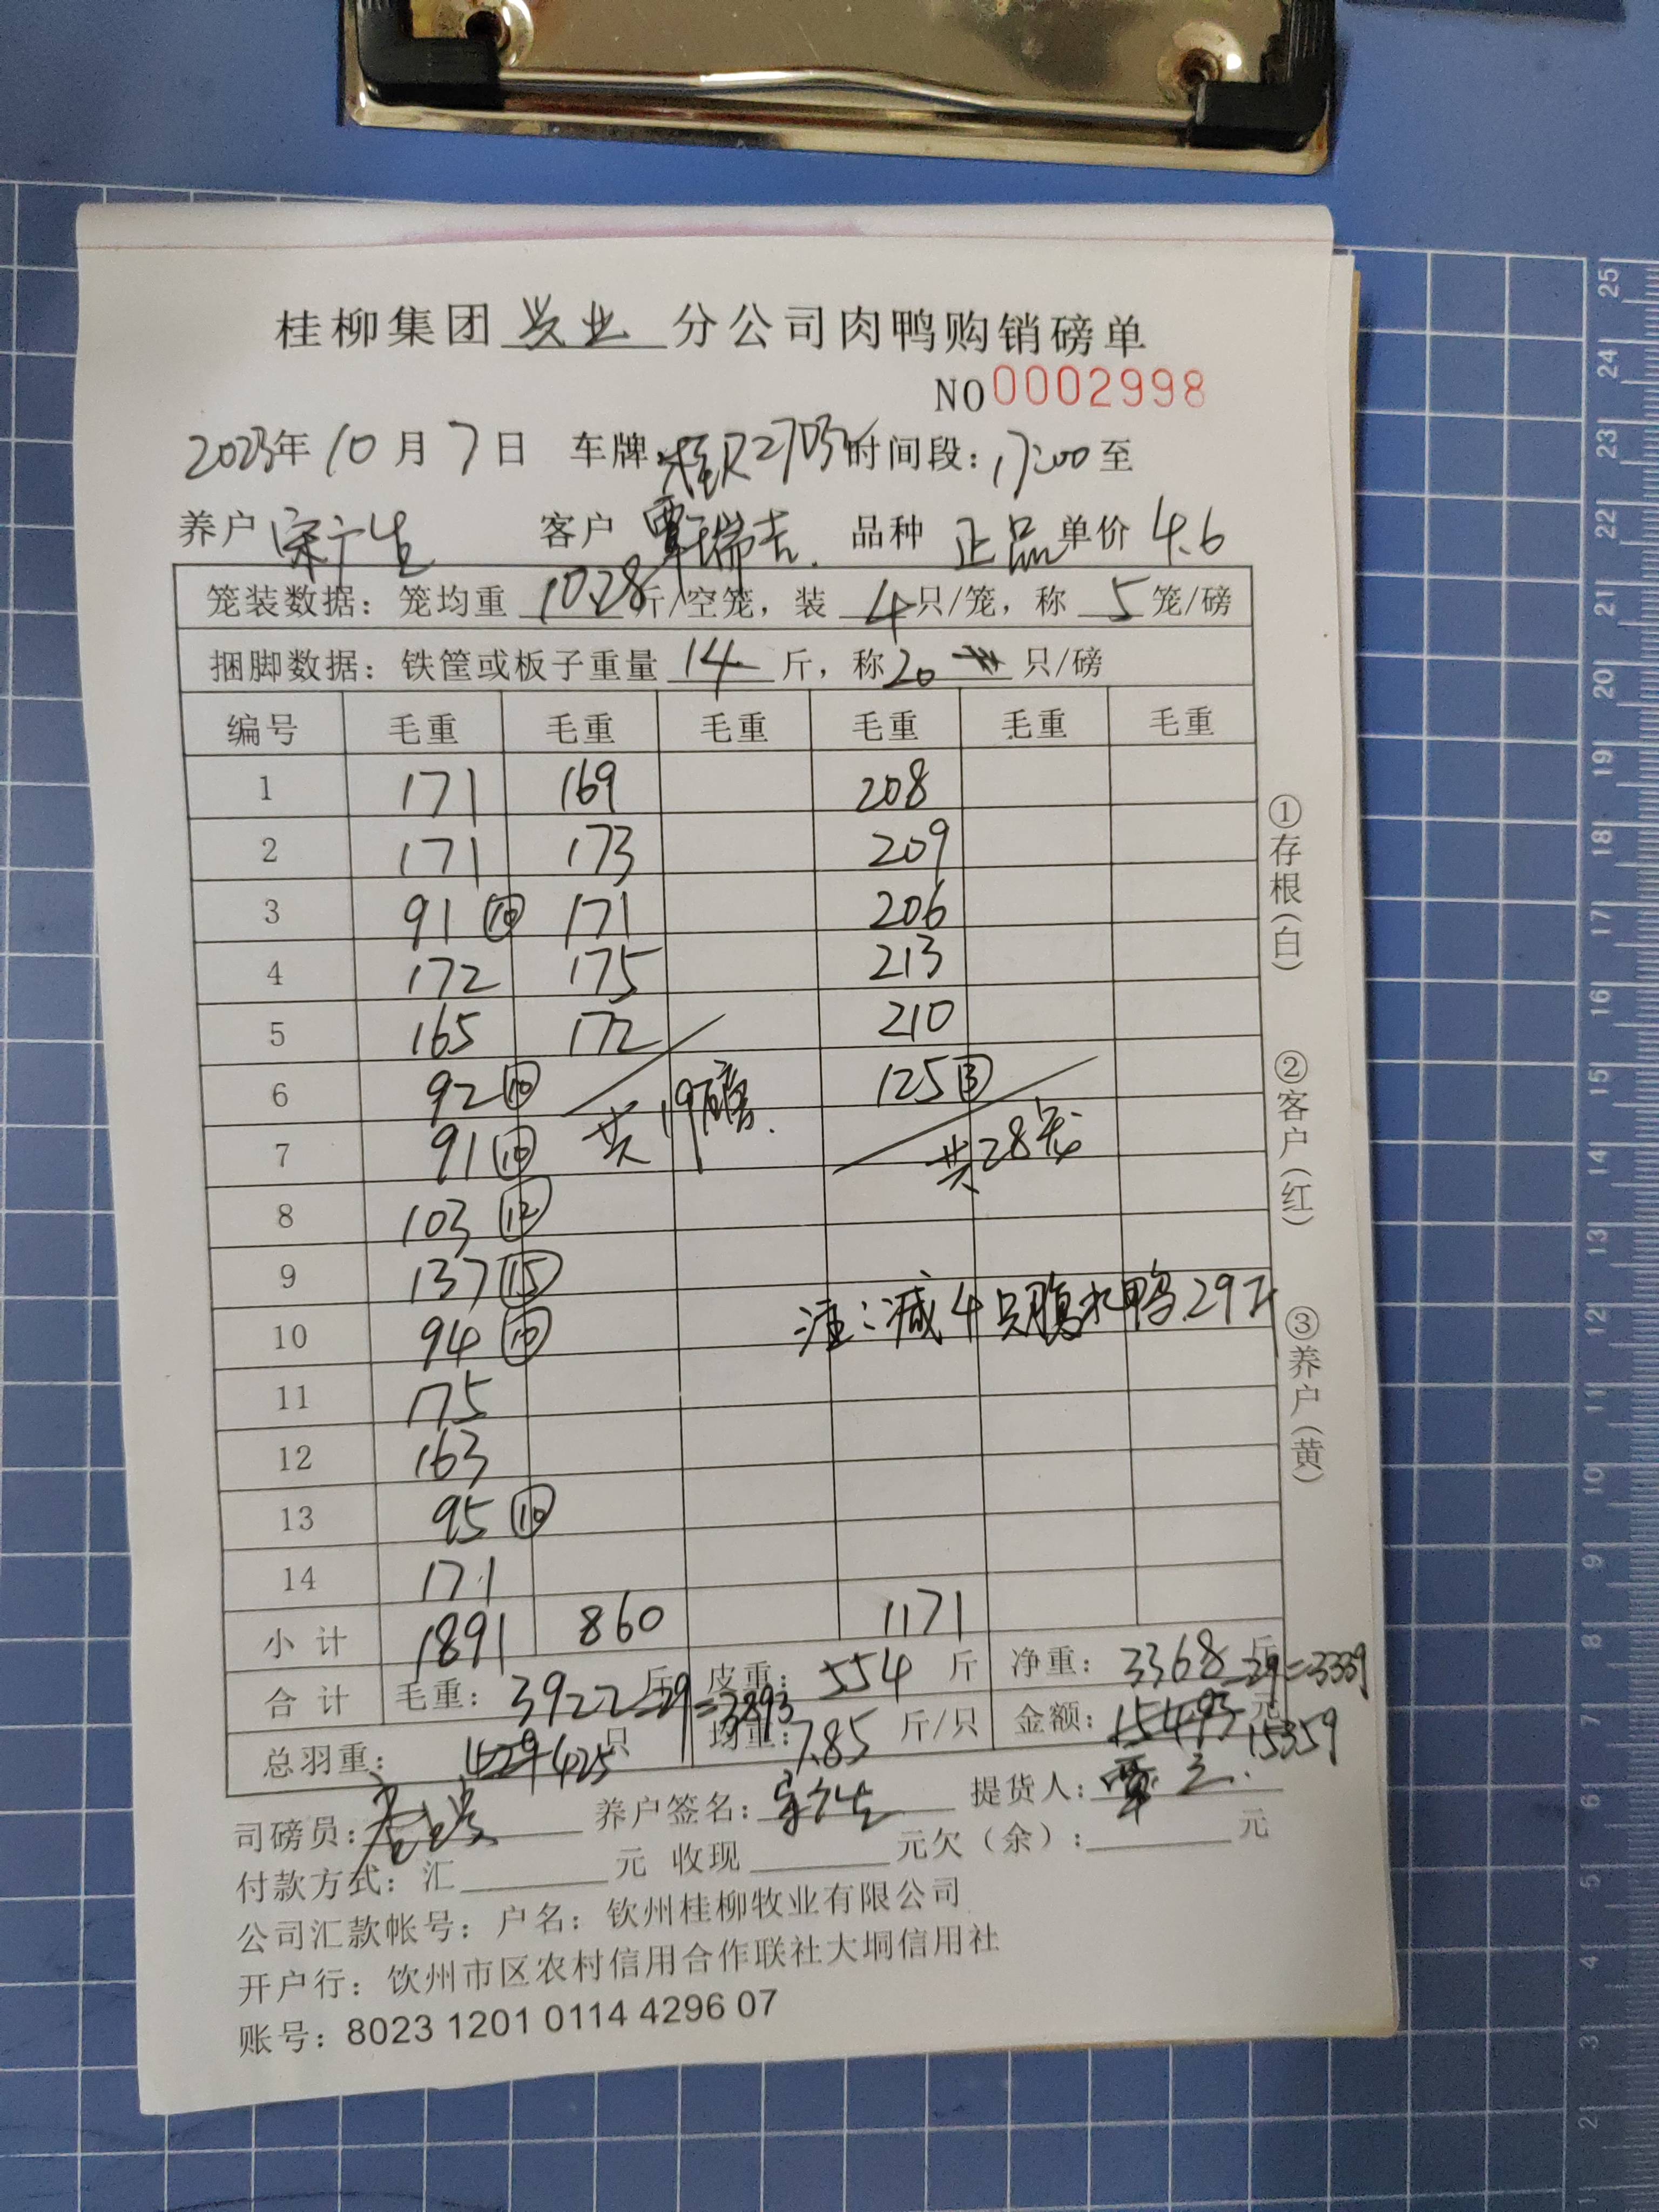 桂柳集团 兴业 分公司肉鸭购销磅单
NO 0002998
2023年 10月 7日 车牌: 桂R2703 时间段: 17:00 至
养户 宋广生 客户 覃瑞吉. 品种 正品 单价 4.6
笼装数据: 笼均重 10.28 斤/空笼, 装 4 只/笼, 称 5 笼/磅
捆脚数据: 铁筐或板子重量 14 斤, 称 20 只/磅
编号 毛重 毛重 毛重 毛重 毛重 毛重
1 171 169 208
2 171 173 209
3 91 ⑩ 171 206
4 172 175 213
5 165 172 210
6 92 ⑩ 125 ③
7 91 ⑩ 共19磅. 共28笼
8 103 ⑫
9 137 ⑮
10 94 ⑩ 注:减4只腹水鸭.29斤
11 175
12 163
13 95 ⑩
14 171
小计 1891 860 1171
合计 毛重: 3922斤-29=3893 皮重: 554 斤 净重: 3368斤-29=3339
总羽重: 429 425 只 均重: 7.85 斤/只 金额: 15493 元 15359
司磅员: 养户签名: 宋广生 提货人: 覃
付款方式: 汇 元 收现 元欠(余): 元
公司汇款帐号: 户名: 钦州桂柳牧业有限公司
开户行: 饮州市区农村信用合作联社大垌信用社
账号: 8023 1201 0114 4296 07
①存根(白) ②客户(红) ③养户(黄)
25
24
23
22
21
20
19
18
17
16
15
14
13
12
11
10
9
8
7
6
5
4
3
2